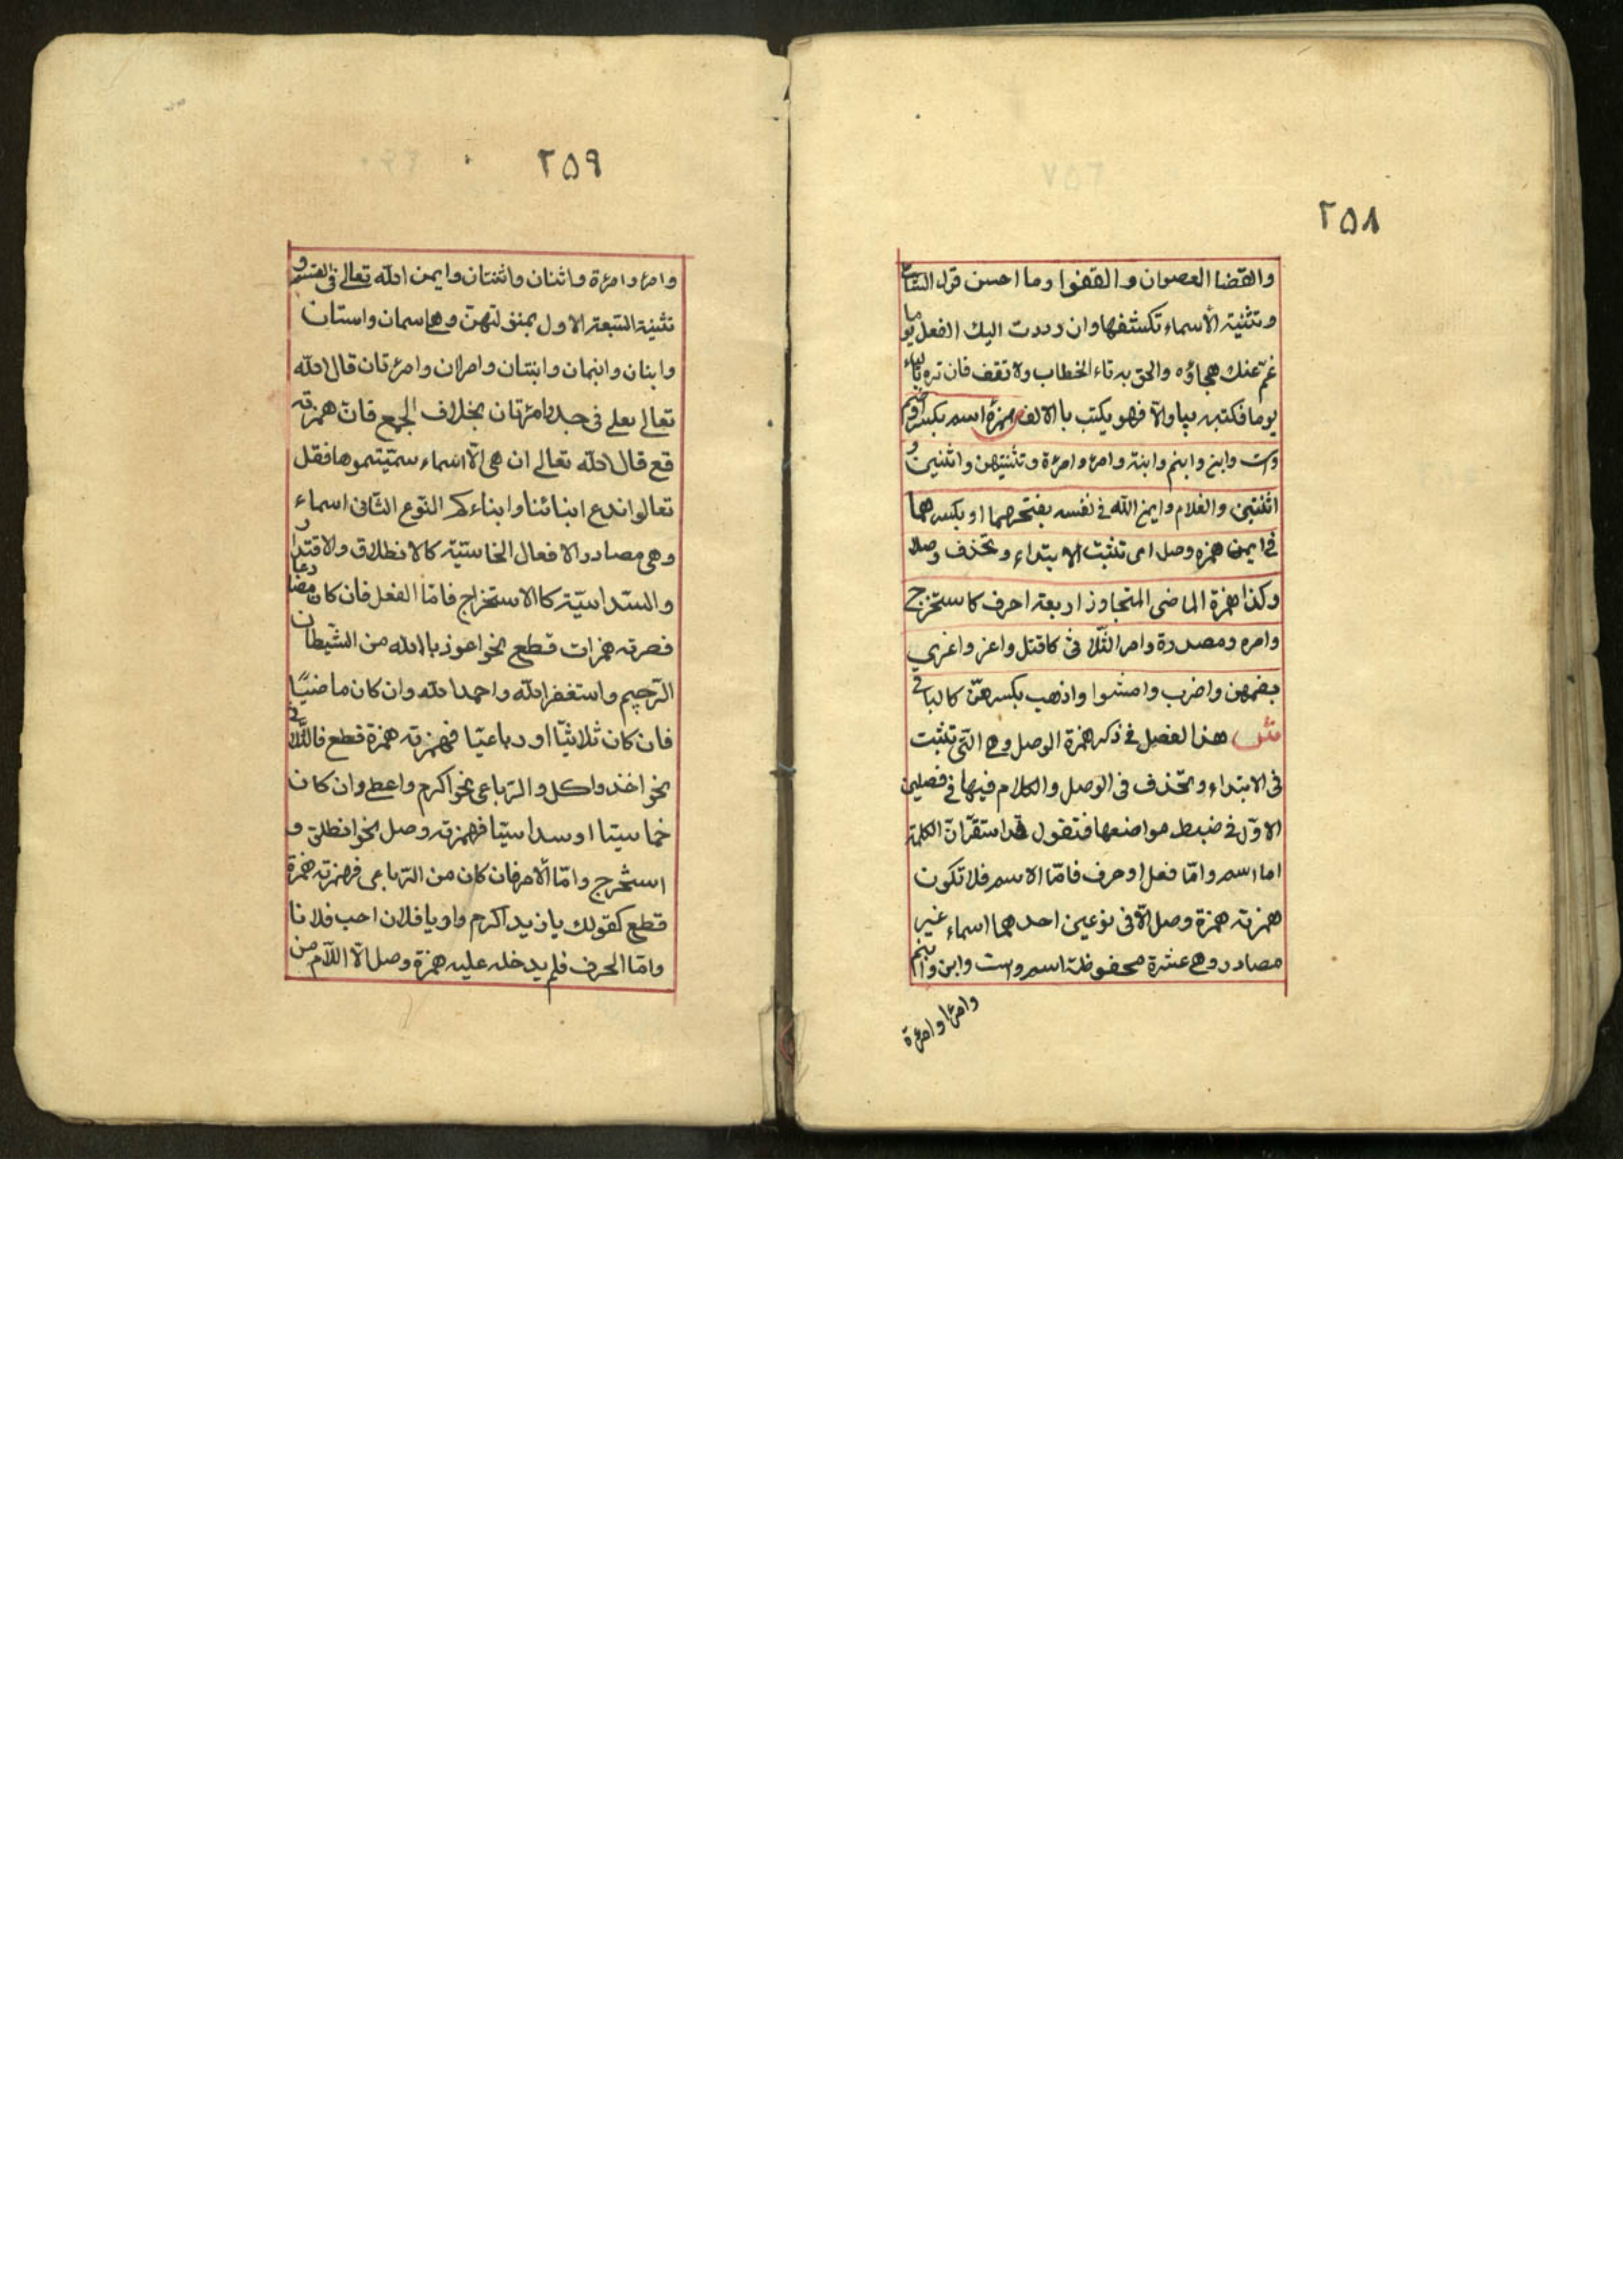 ٢٥٨
والقضا العصوان والقفوا وما احسن قول الشاعر
وتثنية الأسماء تكشفها وان رددت اليك الفعل يوما
غم عنك هجاؤه والحق به تاء الخطاب ولا تقف فان تره بالياء
يوما فكتبه بيا والآ فهو يكتب باالالف همزة اسم بكسر وضم
واست وابن وابنم وابنة وامرؤ وامرءة وتثنيتهن واثنين و
اثنتين والغلام وايمن الله في نفسه بفتحهما او بكسرهما
في ايمن همزه وصل اى تثبت الابتداء وتحذف وصلا
وكذا همزة الماضى المتجاوز اربعة احرف كاستخرج
وامره ومصدرة وامر الثلاثى كاقتل واعز واغزي
بضمهن واضرب وامشوا واذهب بكسرهن كالباقي
ش هذا الفصل في ذكر همزة الوصل وهى التى تثبت
فى الابتداء وتحذف فى الوصل والكلام فيها في فصلين
الاوّل في ضبط مواضعها فنقول قد استقرّ ان الكلمة
اما اسم وامّا فعل او حرف فامّا الاسم فلا تكون
همزته همزة وصل الآ فى نوعين احدهما اسماء غير
مصادر وهى عشرة محفوظة اسم واست وابن وابنم
وامرؤا وامرءة
٢٥٩
وامرؤ وامرءة واثنان واثنتان وايمن الله تعالى فى القسم و
تثنية السّبعة الاول بمنزلتهنّ وهى اسمان واستان
وابنان وابنمان وابنتان وامران وامرءتان قال الله
تعالى فرجل وامرءتان بخلاف الجمع فانّ همزته
قع قال الله تعالى ان هى الّا اسماء سمّيتموها فقل
تعالوا ندع ابنائنا وابناءكم النّوع الثّانى اسماء
وهى مصادر الافعال الخماسيّة كالانطلاق والاقتدار
والسّداسيّة كالاستخراج فامّا الفعل فان كان مضارعا
فهمزته همزات قطع نحو اعوذ بالله من الشّيطان
الرّجيم واستغفر الله واحمد الله وان كان ماضيًا
فان كان ثلاثيّا او رباعيّا فهمزته همزة قطع فالثّلاثى
نحو اخذ واكل والرّباعى نحو اكرم واعطى وان كان
خماسيّا او سداسيّا فهمزته وصل نحو انطلق و
استخرج وامّا الأمر فان كان من الرّباعى فهمزته همزة
قطع كقولك يا زيد اكرم واو يا فلان احب فلانا
وامّا الحرف فلم يدخله عليه همزة وصل الّا اللّام من